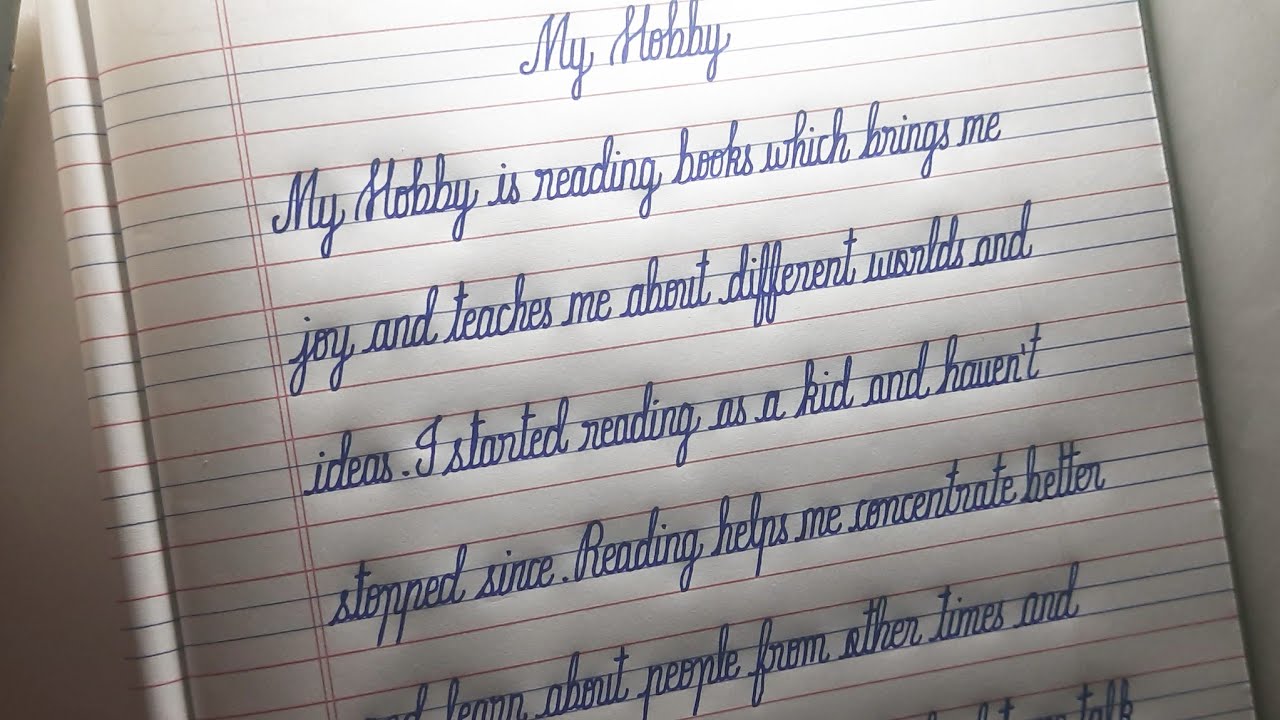 My Hobby
My Hobby is reading books which brings me
joy and teaches me about different worlds and
ideas. I started reading as a kid and haven't
stopped since. Reading helps me concentrate better
and learn about people from other times and
talk